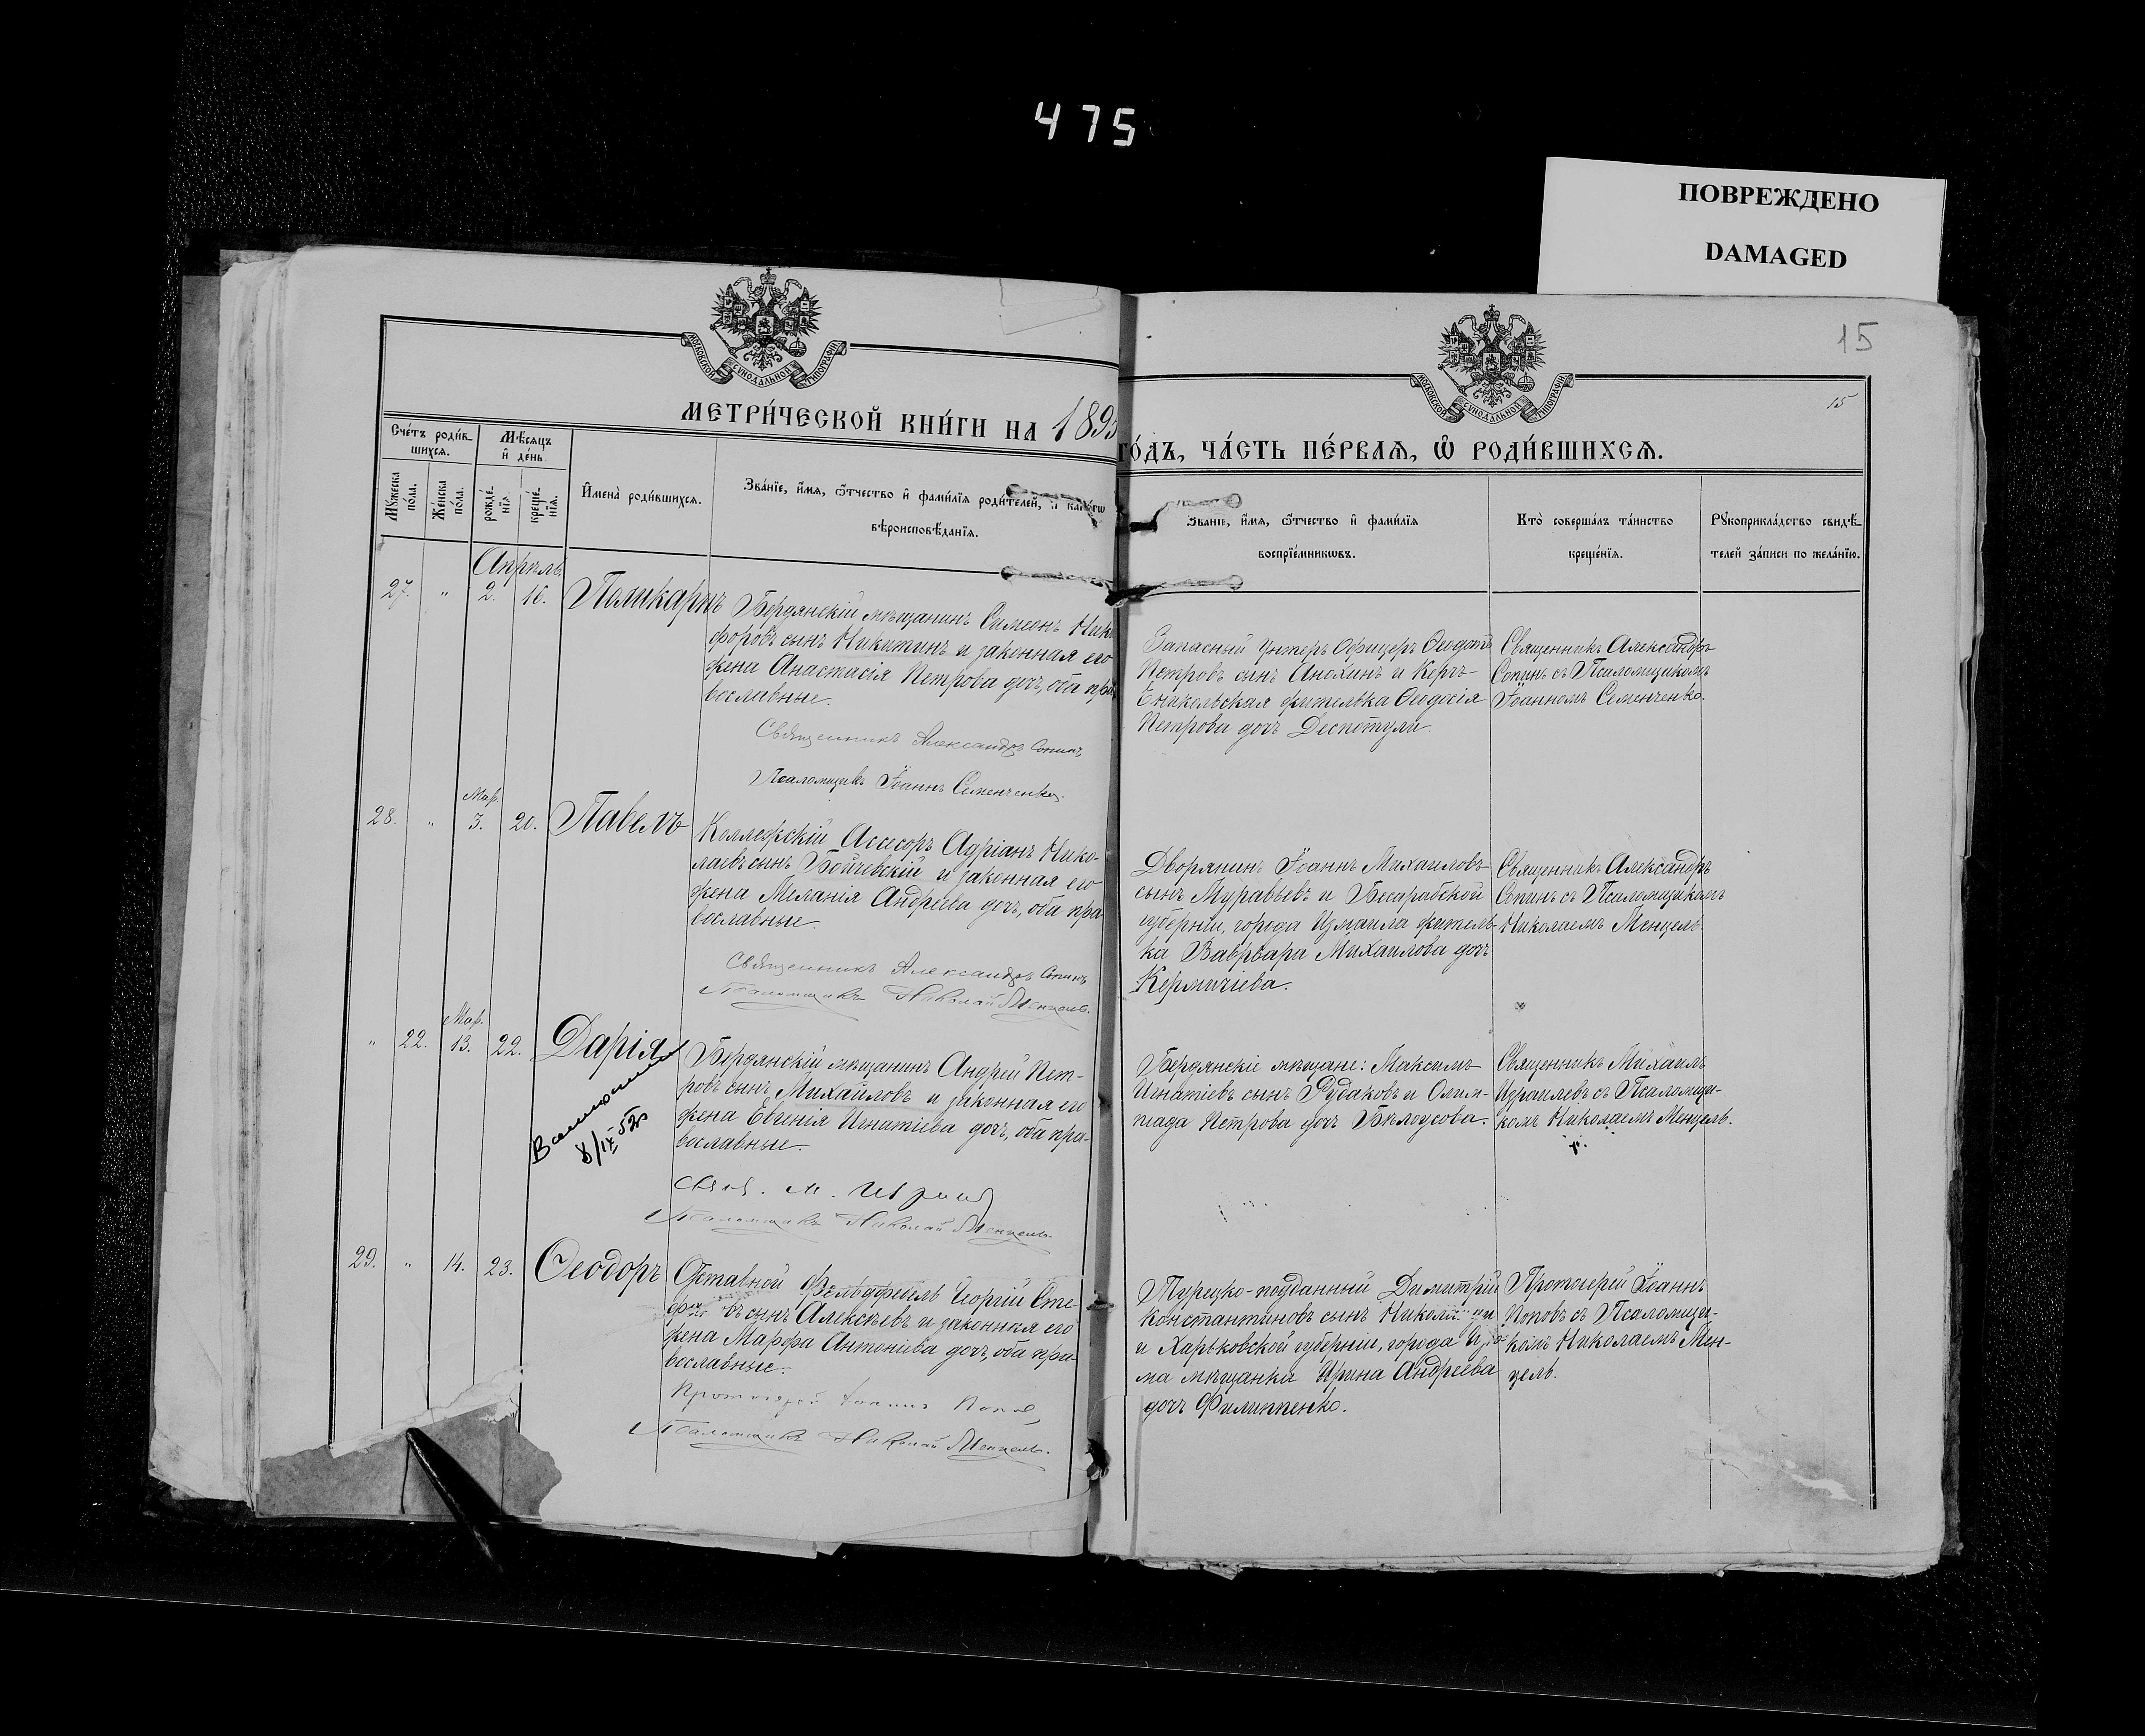 475
ПОВРЕЖДЕНО
DAMAGED
15
15
МОСКОВСКОЙ СУНОДАЛЬНОЙ ТИПОГРАФІИ
МОСКОВСКОЙ СУНОДАЛЬНОЙ ТИПОГРАФІИ
МЕТРИ́ЧЕСКОЙ КНИ́ГИ НА 1895
ГО́ДЪ, ЧА́СТЬ ПЕ́РВАЯ, Ѡ РОДИ́ВШИХСЯ.
Сче́тъ роди́в-
шихся.
Мꙋжеска по́ла.
Же́нска по́ла.
Мѣ́сяцъ
и҆ де́нь
рожде́-
нїя
креще́-
нїя.
И҆мена̀ роди́вшихся.
Зва́нїе, и҆́мя, ѻ҆́тчество и҆ фами́лїя роди́телей, и҆
вѣроисповѣ́данїя.
Зва́нїе, и҆́мя, ѻ҆́тчество и҆ фами́лїя
воспрїе́мникѡвъ.
Кто̀ соверша́лъ та́инство
креще́нїя.
Рꙋкоприкла́дство свидѣ́-
телей за́писи по жела́нїю.
Апрѣль
27. " 2. 16. Поликарпъ
Бердянскій мѣщанинъ Симеонъ Ники
форовъ сынъ Никитинъ и законная его
жена Анастасія Петрова дочь, оба пра
вославные.
Священникъ Александръ Сопинъ
Псаломщикъ Іоаннъ Семенченко.
Запасный Унтеръ Офицеръ Ѳеодотъ
Петровъ сынъ Анохинъ и Керчь-
Еникольская жителька Ѳеодосія
Петрова дочь Деспотули.
Священникъ Александръ
Сопинъ съ Псаломщикомъ
Іоанномъ Семенченко.
Мар.
28. " 3. 20. Павелъ
Коллежскій Ассесоръ Адріанъ Нико-
лаевъ сынъ Бойчевскій и законная его
жена Меланія Андреева дочь, оба пра-
вославные.
Священникъ Александръ Сопинъ
Псаломщикъ Николай Менцель.
Дворянинъ Іоаннъ Михаиловъ
сынъ Муравьевъ и Бесарабской
губерніи, города Измаила житель-
ка Варвара Михаилова дочь
Кермичіева.
Священникъ Александръ
Сопинъ съ Псаломщикомъ
Николаемъ Менцель.
Мар.
" 22. 13. 22. Дарія
8/IX 52
Бердянскій мѣщанинъ Андрей Пет-
ровъ сынъ Михайловъ и законная его
жена Евгенія Игнатіева дочь, оба пра-
вославные.
Свящ. М.
Псаломщикъ Николай Менцель.
Бердянскіе мѣщане: Максимъ
Игнатіевъ сынъ Рудаковъ и Олим-
піада Петрова дочь Бѣлоусова.
Священникъ Михаилъ
Израилевъ съ Псаломщи-
комъ Николаемъ Менцель.
29. " 14. 23. Ѳеодоръ
Отставной Фельдфебель Георгій Сте-
фановъ сынъ Алексѣевъ и законная его
жена Марфа Антоніева дочь, оба пра-
вославные.
Протоіерей Іоаннъ Поповъ
Псаломщикъ Николай Менцель.
Турецко-подданный Димитрій
Константиновъ сынъ
и Харьковской губерніи, города Изю-
ма мѣщанка Ирина Андреева
дочь Филиппенко.
Протоіерей Іоаннъ
Поповъ съ Псаломщи-
комъ Николаемъ Мен-
цель.